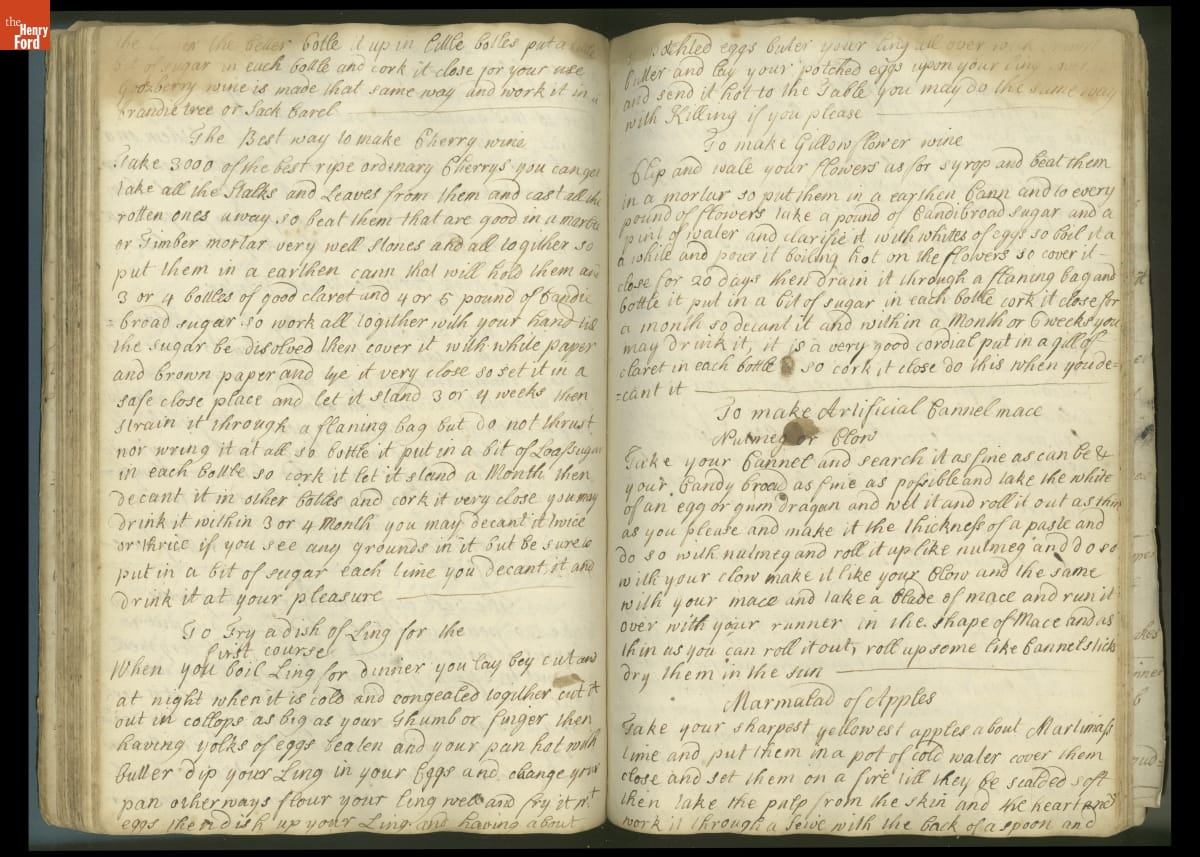 the Henry Ford
the better botle it up in little botles put a
bit of sugar in each bottle and cork it close for your use
Goozberry wine is made that same way and work it in a
brandie tree or Sack barel
The Best way to make Cherry wine
Take 3000 of the best ripe ordinary Cherrys you can get
take all the Stalks and Leaves from them and cast all the
rotten ones away so beat them that are good in a marble
or Timber mortar very well stones and all togither so
put them in a earthen cann that will hold them and
3 or 4 bottles of good claret and 4 or 5 pound of Candie
=broad sugar so work all together with your hand till
the sugar be disolved then cover it with while paper
and brown paper and tye it very close so set it in a
safe close place and let it stand 3 or 4 weeks then
strain it through a flaning bag but do not thrust
nor wring it at all so bottle it put in a bit of Loafsugar
in each bottle so cork it let it stand a Month then
decant it in other botles and cork it very close you may
drink it within 3 or 4 Month you may decant it twice
or thrice if you see any grounds in it but be sure to
put in a bit of sugar each time you decant it and
drink it at your pleasure
To Fry a dish of Ling for the
first course
When you boil Ling for dinner you lay bey cut and
at night when it is cold and congealed togither cut it
out in collops as big as your thumb or finger then
having yolks of eggs beaten and your pan hot with
butter dip your Ling in your Eggs and change your
pan otherways flour your ling well and fry it wt
eggs then dish up your Ling and having about
potched eggs buter your ling all over with
butter and lay your potched eggs upon your Ling over
and send it hot to the Table you may do the same way
with Killing if you please
To make Gillowflower wine
Clip and wale your flowers as for syrop and beat them
in a mortar so put them in a earthen Cann and to every
pound of flowers take a pound of Candibroad sugar and a
pint of water and clarifie it with whites of eggs so boil it a
a while and pour it boiling hot on the flowers so cover it
close for 20 days then drain it through a flaning bag and
bottle it put in a bit of sugar in each botle cork it close for
a month so decant it and within a Month or 6 weeks you
may drink it, it is a very good cordial put in a gill of
claret in each bottle so cork it close do this when you de=
=cant it
To make Artificial Cannel mace
Nutmeg or Clow
Take your Cannel and search it as fine as can be &
your Candy broad as fine as possible and take the white
of an egg or gum dragan and wet it and roll it out as thin
as you please and make it the thickness of a paste and
do so with nutmeg and roll it up like nutmeg and do so
with your clow make it like your Clow and the same
with your mace and take a blade of mace and run it
over with your runner in the shape of Mace and as
thin as you can roll it out, roll up some like Cannel sticks
dry them in the sun
Marmalad of Apples
Take your sharpest yellowest apples about Martimass
time and put them in a pot of cold water cover them
close and set them on a fire till they be scalded soft
then take the pulp from the skin and the heart and
work it through a seive with the back of a spoon and